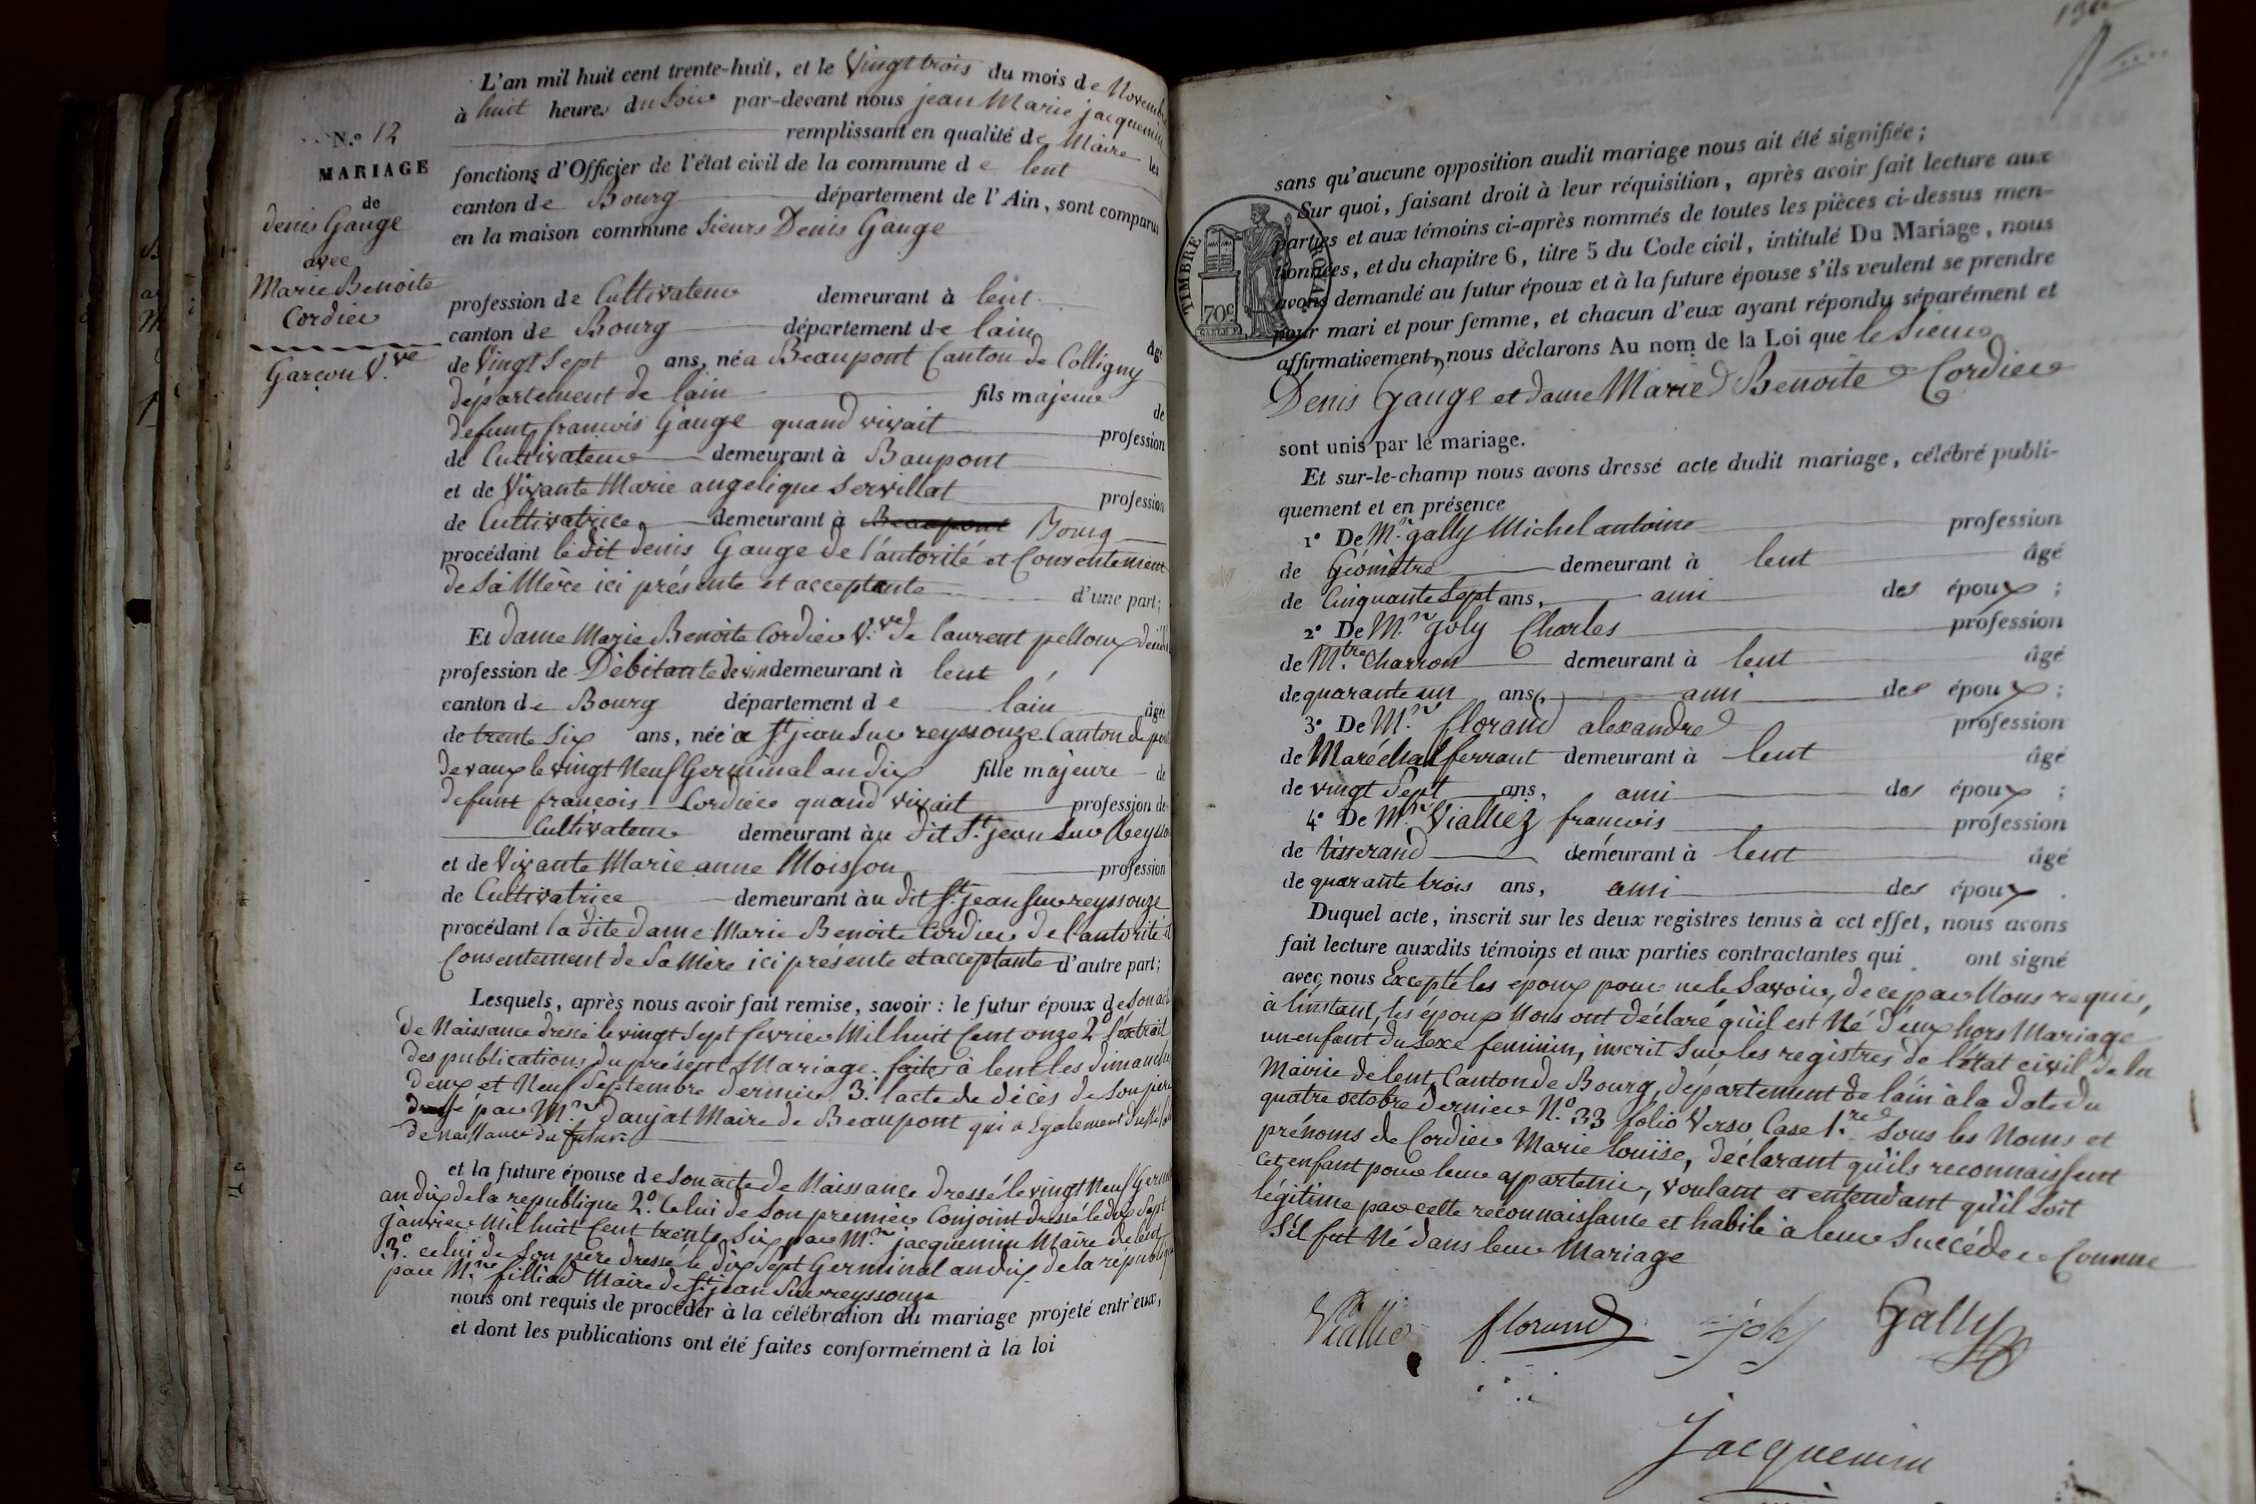 L'an mil huit cent trente-huit, et le Vingt trois du mois de Novembre
à huit heures du Soir par-devant nous jean Marie jacquemin
remplissant en qualité de Maire les
fonctions d'Officier de l'état civil de la commune de lent
canton de Bourg département de l'Ain, sont comparus
en la maison commune Sieurs Denis Gauge
N.º 12
MARIAGE
de
denis Gauge
avec
Marie Benoite
Cordier
Garçon V.ve
profession de Cultivateur demeurant à lent
canton de Bourg département de lain
âgé
de Vingt Sept ans, né a Beaupont Canton de Colligny
département de lain fils majeur de
defunt francois Gauge quand vivait profession
de Cultivateur demeurant à Baupont
et de Vivante Marie angelique Servillat profession
de Cultivatrice demeurant à Beaupont Bourg
procédant le dit denis Gauge de l'autorité et Consentement
de Sa Mère ici présente et acceptante d'une part;
Et dame Marie Benoite Cordier V.ve de laurent pelloux
profession de Débitante de vin demeurant à lent
canton de Bourg département de lain âgée
de trente Six ans, née a St jean Sur reyssouze Canton de pont
de vaux le vingt Neuf Germinal an dix fille majeure de
defunt françois Cordier quand vivait profession de
Cultivateur demeurant àu dit St jean Sur Reysso
et de Vivante Marie anne Moisson profession
de Cultivatrice demeurant àu dit St jean Sur reyssouze
procédant la dite dame Marie Benoite Cordier de l'autorité et
Consentement de Sa Mère ici presente et acceptante d'autre part;
Lesquels, après nous avoir fait remise, savoir : le futur époux de Son act
de Naissance dressé le vingt Sept fevrier Mil huit Cent onze 2º l'extrait
des publications du présent Mariage faites à lent les dimanche
deux et Neuf Septembre dernier 3º l'acte de décès de Son père
dressé par M.r daujat Maire de Beaupont qui a Egalement
de naissance du futur.
et la future épouse de Son acte de Naissance dressé le vingt Neuf Germ
an dix de la republique 2º. Celui de Son premier Conjoint dressé le dix Sept
janvier Mil huit Cent trente Six par M.r jacquemin Maire de lent
3º celui de Son père dressé le dix Sept Germinal an dix de la républiq
par M.r filliod Maire de St jean Sur reyssouze
nous ont requis de procéder à la célébration du mariage projeté entr'eux,
et dont les publications ont été faites conformément à la loi
sans qu'aucune opposition audit mariage nous ait été signifiée;
Sur quoi, faisant droit à leur réquisition, après avoir fait lecture aux
parties et aux témoins ci-après nommés de toutes les pièces ci-dessus men-
tionnées, et du chapitre 6, titre 5 du Code civil, intitulé Du Mariage, nous
avons demandé au futur époux et à la future épouse s'ils veulent se prendre
pour mari et pour femme, et chacun d'eux ayant répondu séparément et
affirmativement, nous déclarons Au nom de la Loi que le Sieur
TIMBRE ROYAL
70c
Denis Gauge et dame Marie Benoite Cordier
sont unis par le mariage.
Et sur-le-champ nous avons dressé acte dudit mariage, célébré publi-
quement et en présence
1º De M.r gally Michel antoine profession
de Géomètre demeurant à lent âgé
de Cinquante Sept ans, ami des époux ;
2º De M.r joly Charles profession
de M.tre Charron demeurant à lent âgé
de quarante un ans, ami des époux ;
3º De M.r florand alexandre profession
de Maréchal ferrant demeurant à lent âgé
de vingt Sept ans, ami des époux ;
4º De M.r Vialliez francois profession
de tisserand demeurant à lent âgé
de quarante trois ans, ami des époux .
Duquel acte, inscrit sur les deux registres tenus à cet effet, nous avons
fait lecture auxdits témoins et aux parties contractantes qui ont signé
avec nous Excepté les époux pour ne le Savoir, de ce par Nous requis,
à linstant, les époux Nous ont déclaré qu'il est Né d'eux hors Mariage
un enfant du Sexe feminin, inscrit Sur les registres de l'état civil de la
Mairie de lent Canton de Bourg, département de lain à la date du
quatre octobre dernier Nº 33 folio Verso Case 1.re Sous les Noms et
prénoms de Cordier Marie louise, déclarant qu'ils reconnaissent
cet enfant pour leur appartenir, voulant et entendant qu'il Soit
légitime par cette reconnaissance et habile à leur Succéder Comme
S'il fut Né dans leur Mariage
Viallie florand joly Gally
Jacquemin